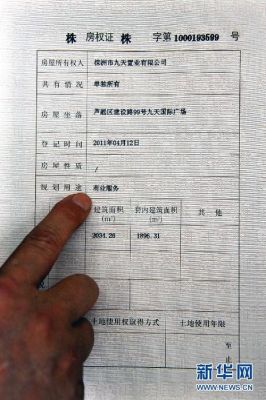 株 房权证 株 字第 1000193599 号
房屋所有权人 株洲市九天置业有限公司
共有情况 单独所有
房屋坐落 芦淞区建设路99号九天国际广场
登记时间 2011年04月12日
房屋性质 /
规划用途 商业服务
建筑面积 (m²) 套内建筑面积 (m²) 其他
2034.26 1896.31
土地使用权取得方式 土地使用年限
至
止
新华网
WWW.NEWS.CN